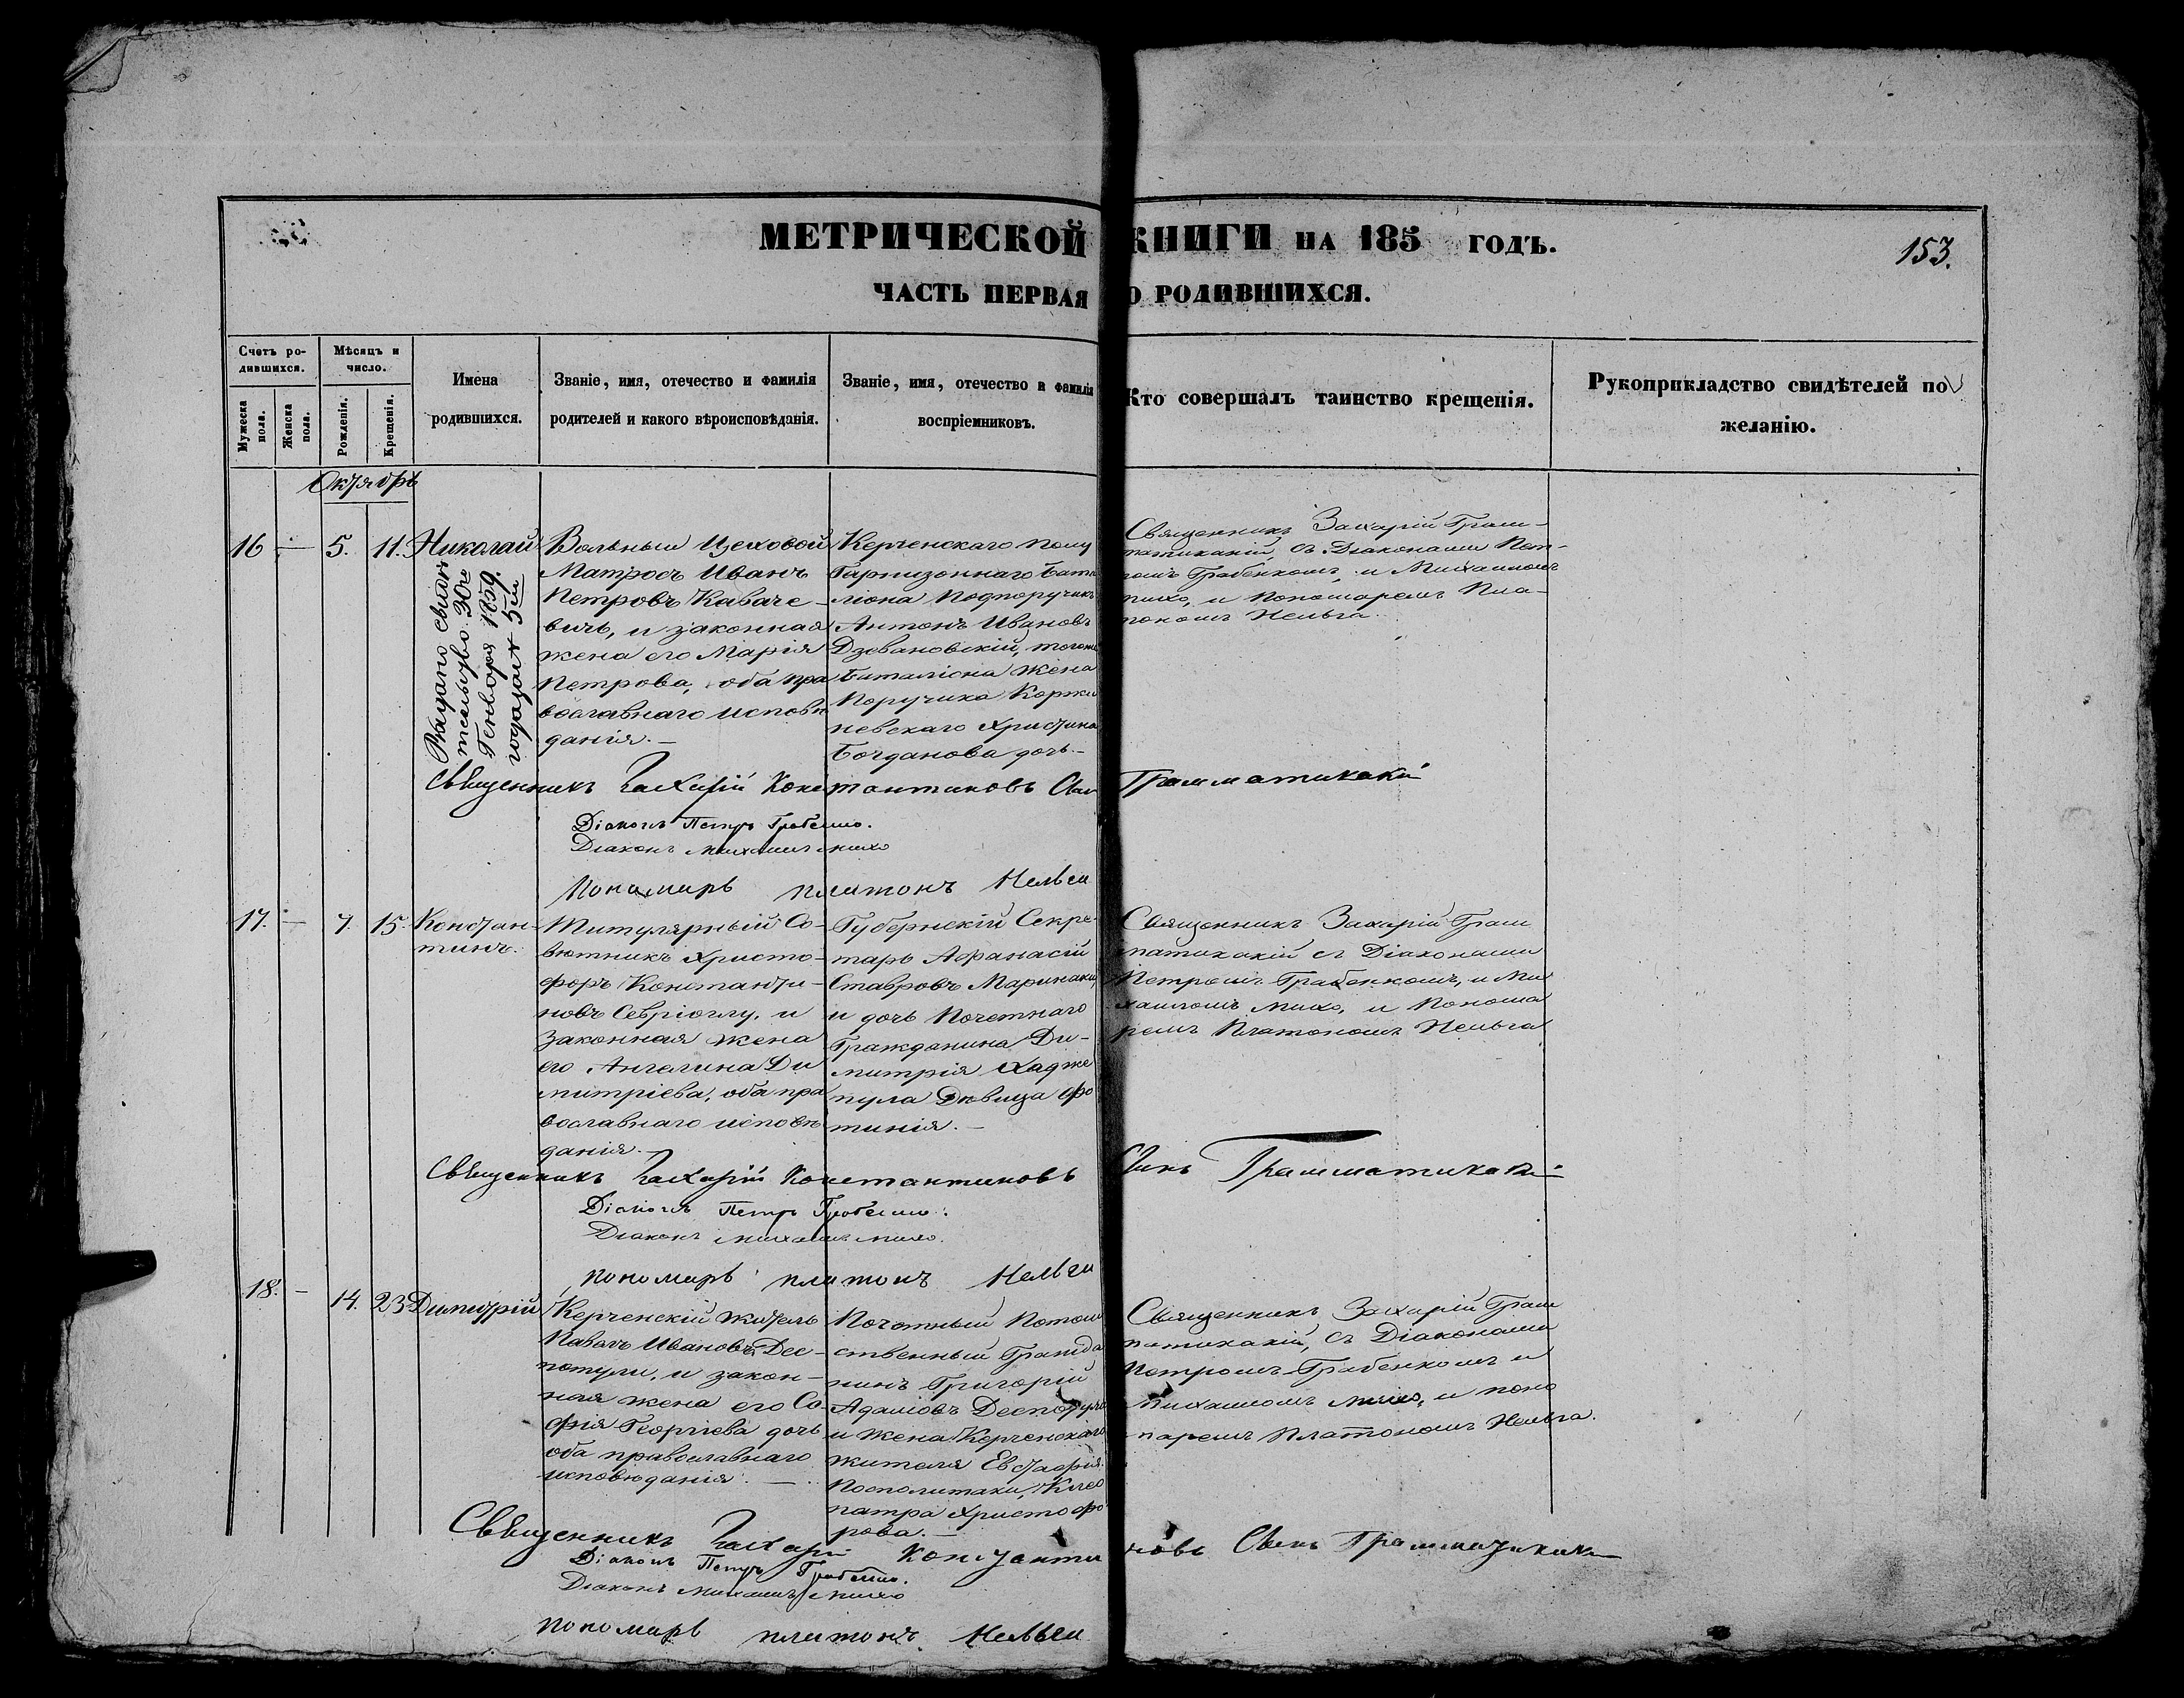 МЕТРИЧЕСКОЙ КНИГИ НА 185 ГОДЪ.
153.
ЧАСТЬ ПЕРВАЯ О РОДИВШИХСЯ.
Счетъ ро-
дившихся.
Мужеска пола.
Женска пола.
Мѣсяцъ и
число.
Рожденія.
Крещенія.
Имена
родившихся.
Званіе, имя, отечество и фамилія
родителей и какого вѣроисповѣданія.
Званіе, имя, отечество и фамилія
воспріемниковъ.
Кто совершалъ таинство крещенія.
Рукоприкладство свидѣтелей по
желанію.
Октябрь
16 — 5. 11. Николай
Выдано свидѣ
тельство 30го
Генваря 1859.
года за № 5м
Вольный Цеховой
Матросъ Иванъ
Петровъ Каваче-
вичь, и законная
жена его Марія
Петрова, оба пра
вославнаго исповѣ
данія.—
Керченскаго полу
Гарнизоннаго бата
ліона Подпоручикъ
Антонъ Ивановъ
Дзевановскій, тогоже
баталіона жена
Поручика Коржи
невскаго Христина
Богданова дочь.—
Священникъ Захарій Грам-
матикакій, съ Діаконами Пет-
ромъ Грабенкомъ, и Михаиломъ
Михо, и Пономаремъ Пла-
тономъ Нельга.
Священникъ Захарій Константиновъ Сынъ Грамматикаки
Діаконъ Петръ Грабенко.
Діаконъ Михаилъ Михо
Пономарь Платонъ Нельги
17. — 7. 15. Констан-
тинъ.
Титулярный Со-
вѣтникъ Христо-
форъ Константи-
новъ Севріоглу, и
законная жена
его Ангелина Ди
митріева, оба пра
вославнаго исповѣ
данія.—
Губернскій Секре-
тарь Афанасій
Ставровъ Маринаки,
и дочь Почетнаго
Гражданина Ди-
митрія Хадже
пула Дѣвица Фо
тинія.—
Священникъ Захарій Грам
матикакій съ Діаконами
Петромъ Грабенкомъ, и Ми
хаиломъ Михо, и Понома
ремъ Платономъ Нельга
Священникъ Захарій Константиновъ Сынъ Грамматикаки
Діаконъ Петръ Грабенко.
Діаконъ Михаилъ Михо.
Пономарь Платонъ Нельги
18. — 14. 23 Димитрій
Керченскій житель
Павелъ Ивановъ Дес-
потули, и закон-
ная жена его Со
фія Георгіева дочь
оба православнаго
исповѣданія.—
Почетный Потом
ственный Гражда
нинъ Григорій
Адамовъ Деспотули
и жена Керченскаго
жителя Евстафія
Посполитаки, Клео
патра Христофо
рова.—
Священникъ Захарій Грам
матикакій, съ Діаконами
Петромъ Грабенкомъ и
Михаиломъ Михо, и поно
маремъ Платономъ Нельга.
Священникъ Захарій Константиновъ Сынъ Грамматикаки
Діаконъ Петръ Грабенко.
Діаконъ Михаилъ Михо
Пономарь Платонъ Нельги